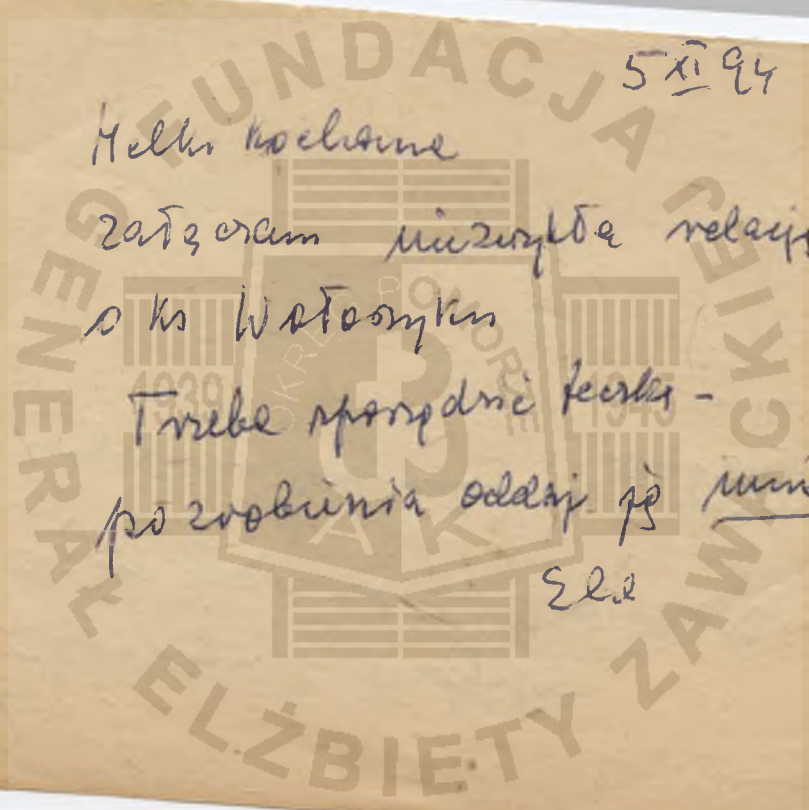 5 XI 94
Helko kochana
załączam niezwykłą relację
o ks Wołoszyku
Trzeba sporządzić teczkę -
po zrobieniu oddaj ją mni
Ela
FUNDACJA
GENERAŁ ELŻBIETY ZAWACKIEJ
OKRĘG POMORZE
1939 1945
AK